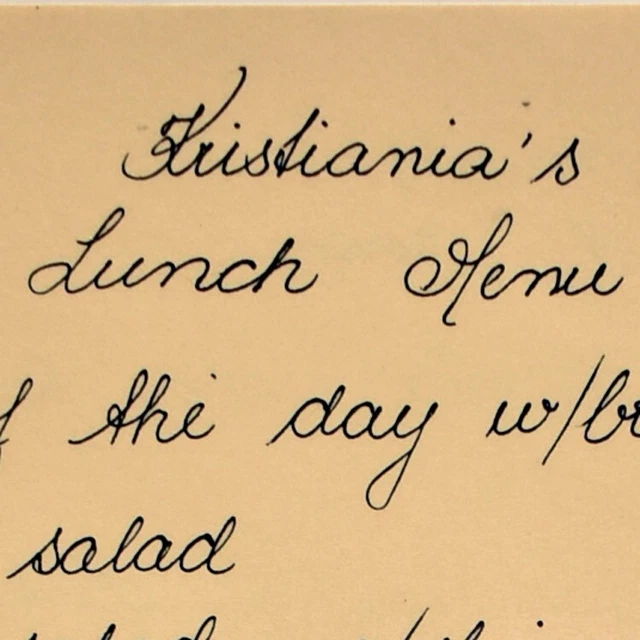 Kristiania's
Lunch Menu
the day w/
salad